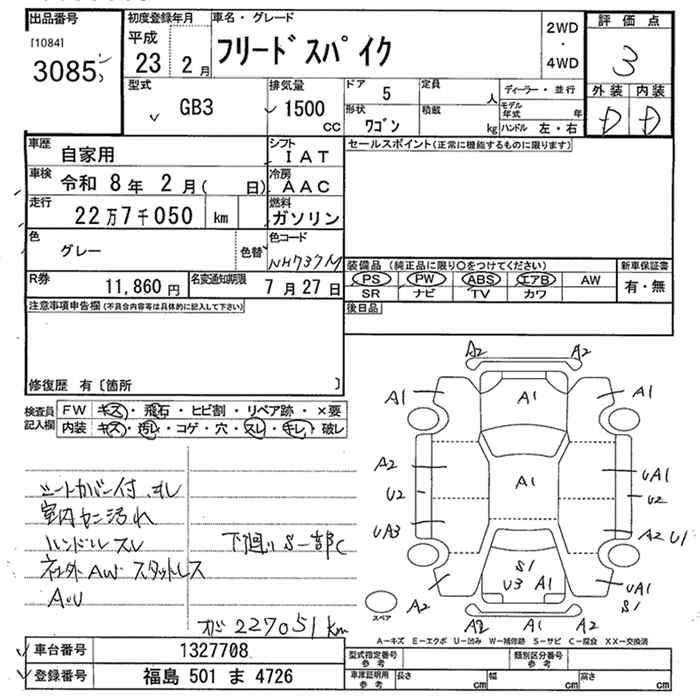 出品番号
[1084]
3085
初度登録年月
平成
23 2月
車名・グレード
フリードスパイク
2WD
・
4WD
評価点
3
外装 内装
D D
型式
GB3
排気量
1500
CC
ドア 5
定員 人
形状
ワゴン
積載 kg
ディーラー・並行
モデル年式 年
ハンドル 左・右
車歴
自家用
シフト
IAT
車検
令和 8年 2月( 日)
冷房
AAC
走行
22万7千050 km
燃料
ガソリン
色
グレー
色替
色コード
NH737M
R券
11,860円
名変通知期限
7月27日
セールスポイント(正常に機能するものに限ります)
装備品 (純正品に限り○をつけてください)
PS PW ABS エアB AW
SR ナビ TV カワ
新車保証書
有・無
後日品
注意事項申告欄(不具合内容等は具体的に記入して下さい)
修復歴 有〔箇所 〕
検査員記入欄
FW キズ・飛石・ヒビ割・リペア跡・×要
内装 キズ・汚レ・コゲ・穴・スレ・キレ・破レ
シートカバー付 キレ
室内カニ汚れ
ハンドルスレ
社外AW スタットレス
AU
下廻りS一部C
メーター 227051km
A2 A2
A1 A1 A1
A2 A1 UA1
U2 U2
UA3 A2 U1
S1
U3 A1 UA1
S1
A2 A2 A1 A2
スペア
A-キズ E-エクボ U-凹み W-補修跡 S-サビ C-腐食 XX-交換済
車台番号
1327708
登録番号
福島 501 ま 4726
型式指定番号
参考
類別区分番号
参考
車庫証明用
参考
長さ cm
幅 cm
高さ cm